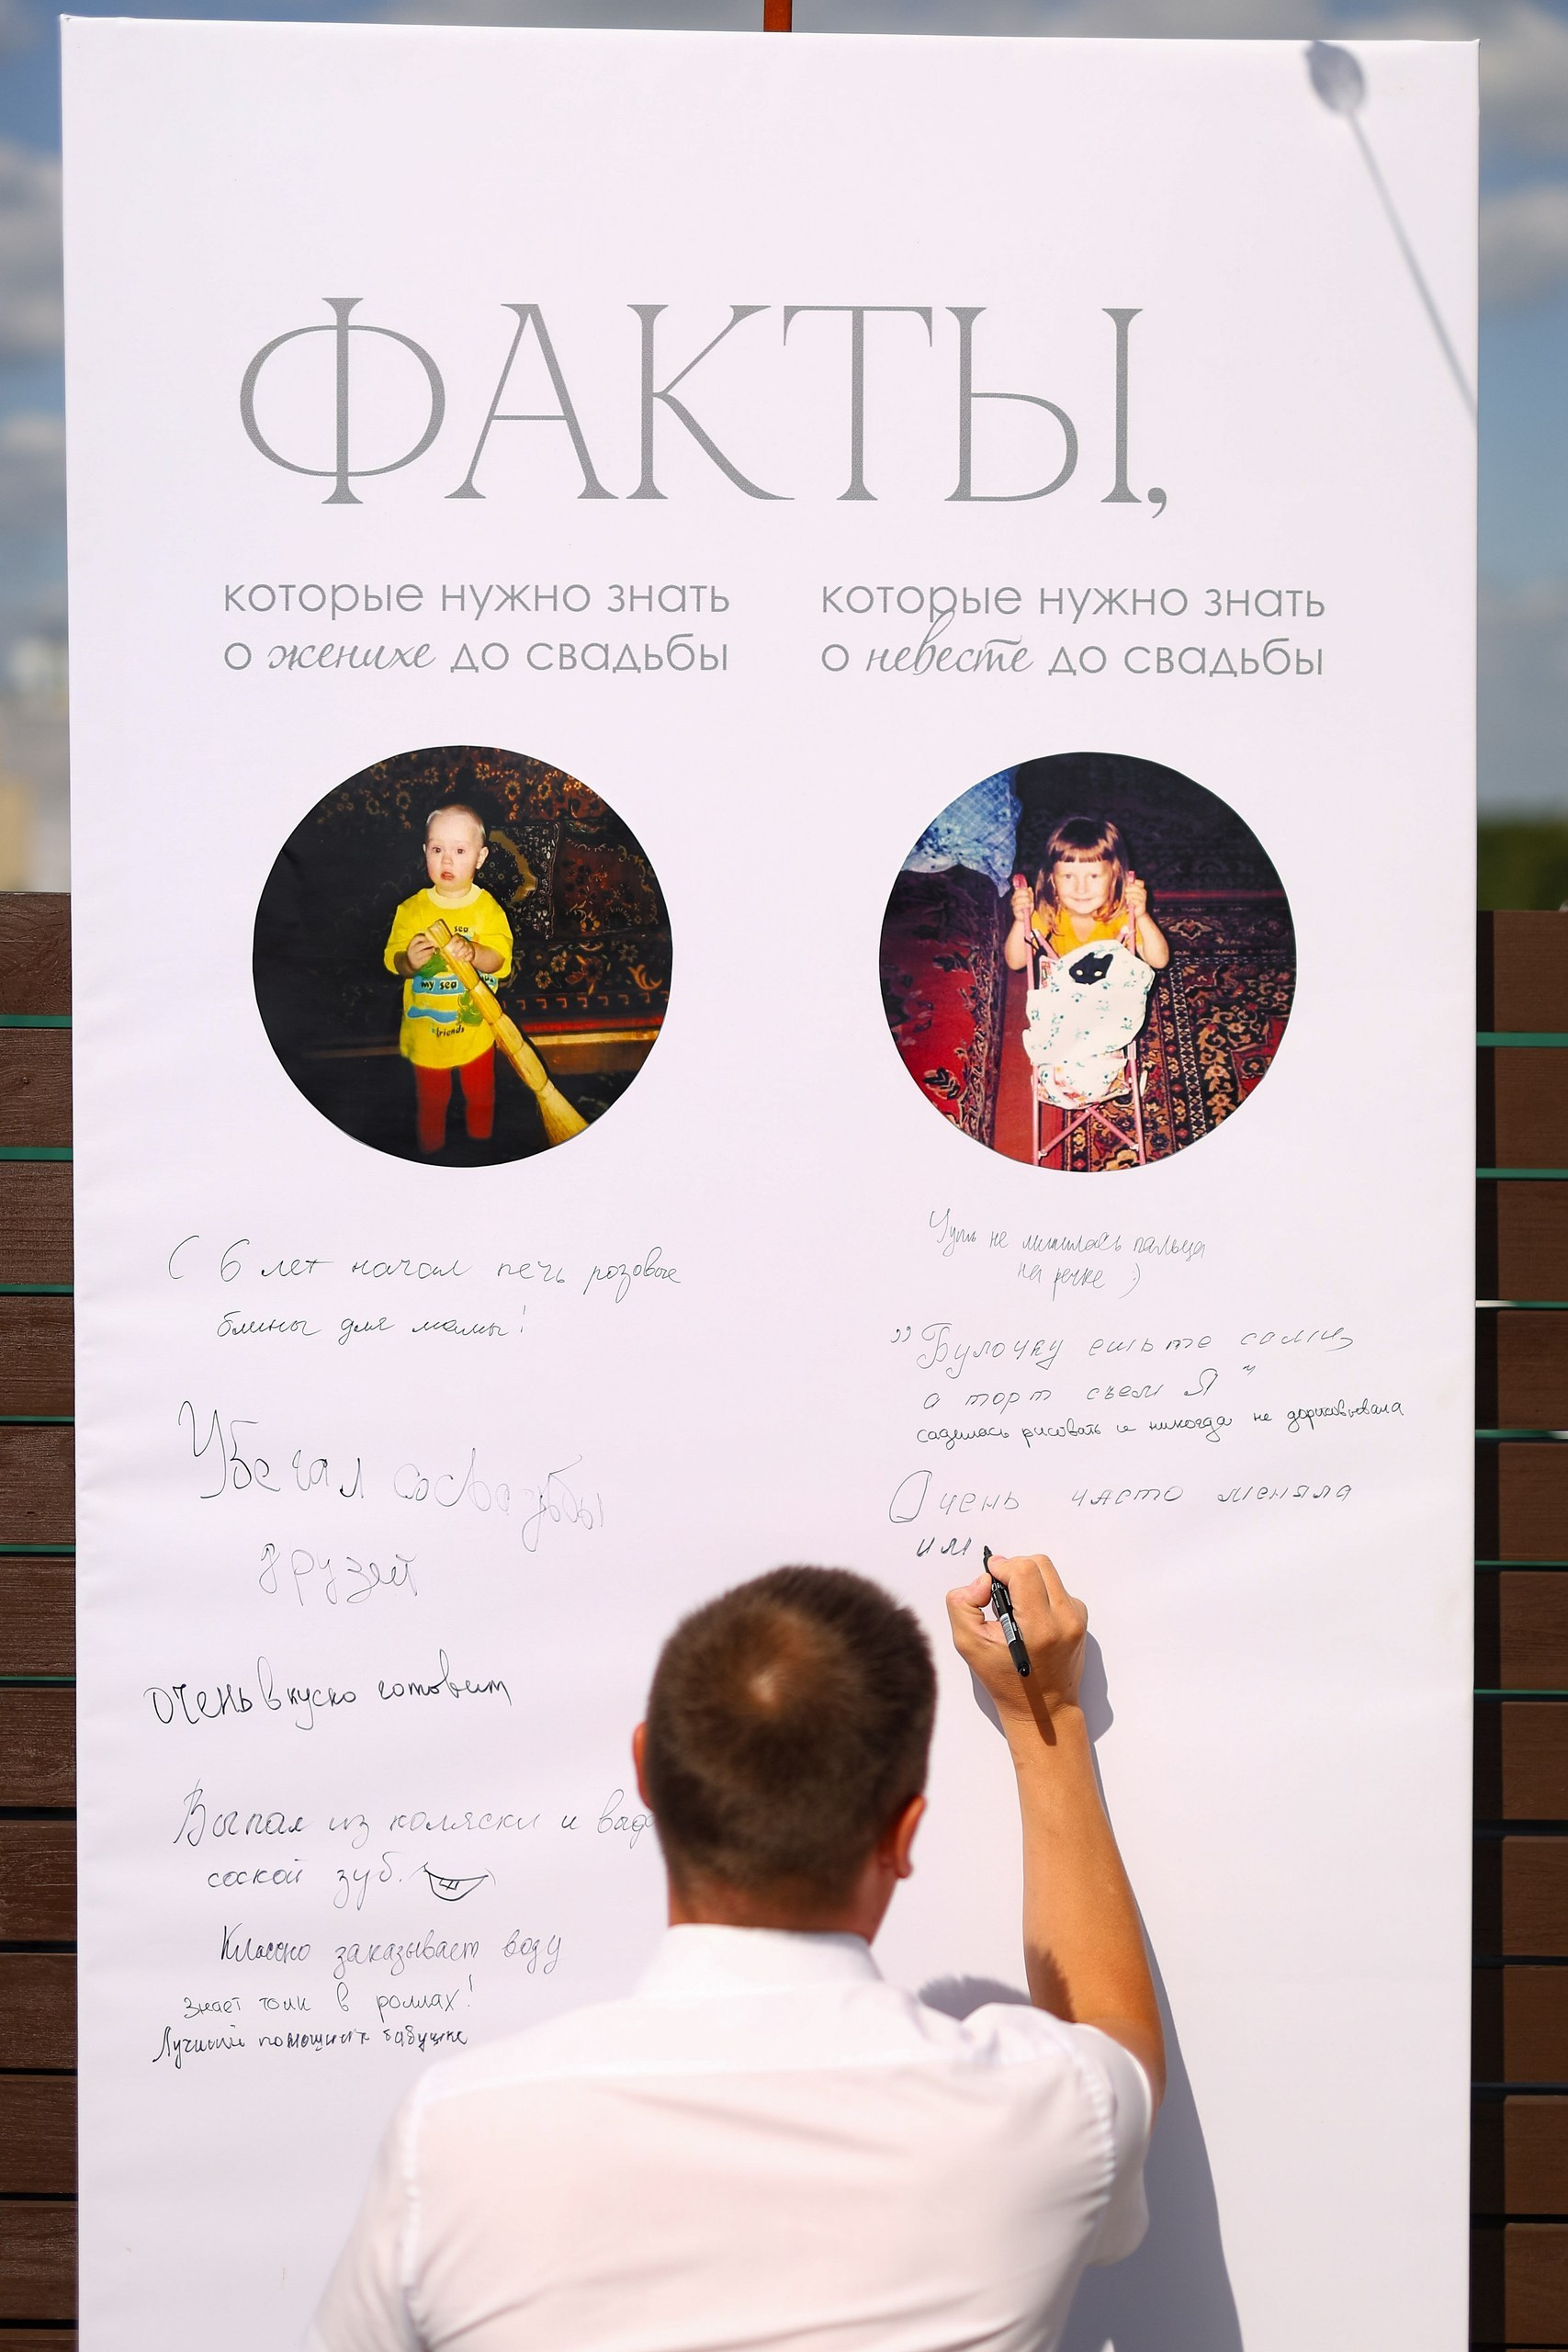 ФАКТЫ,
которые нужно знать
о женихе до свадьбы
которые нужно знать
о невесте до свадьбы
sea
my sea
friends
С 6 лет начал печь розовые
блины для мамы!
Убегал со свадьбы
друзей
очень вкусно готовит
Выпал из коляски и
соской зуб.
Классно заказывает воду
Знает толк в роллах!
Лучший помощник бабушке
Чуть не лишилась пальца
на речке :)
"Булочку ешьте сами,
а торт съем Я"
садилась рисовать и никогда не дорисовывала
Очень часто меняла
им